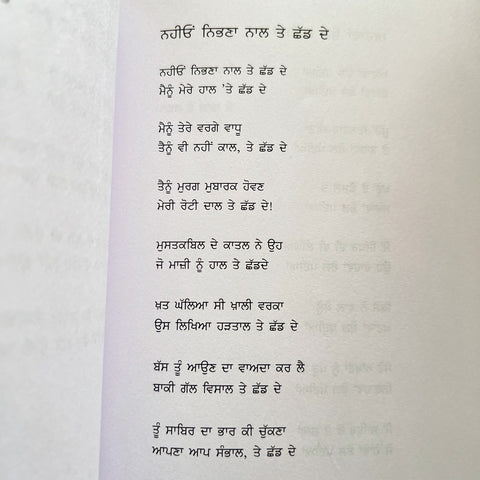 ਨਹੀਓਂ ਨਿਭਣਾ ਨਾਲ ਤੇ ਛੱਡ ਦੇ
ਨਹੀਓਂ ਨਿਭਣਾ ਨਾਲ ਤੇ ਛੱਡ ਦੇ
ਮੈਨੂੰ ਮੇਰੇ ਹਾਲ 'ਤੇ ਛੱਡ ਦੇ
ਮੈਨੂੰ ਤੇਰੇ ਵਰਗੇ ਵਾਧੂ
ਤੈਨੂੰ ਵੀ ਨਹੀਂ ਕਾਲ, ਤੇ ਛੱਡ ਦੇ
ਤੈਨੂੰ ਮੁਰਗ ਮੁਬਾਰਕ ਹੋਵਣ
ਮੇਰੀ ਰੋਟੀ ਦਾਲ ਤੇ ਛੱਡ ਦੇ!
ਮੁਸਤਕਬਿਲ ਦੇ ਕਾਤਲ ਨੇ ਉਹ
ਜੋ ਮਾਜ਼ੀ ਨੂੰ ਹਾਲ ਤੇ ਛੱਡਦੇ
ਖ਼ਤ ਘੱਲਿਆ ਸੀ ਖ਼ਾਲੀ ਵਰਕਾ
ਉਸ ਲਿਖਿਆ ਹੜਤਾਲ ਤੇ ਛੱਡ ਦੇ
ਬੱਸ ਤੂੰ ਆਉਣ ਦਾ ਵਾਅਦਾ ਕਰ ਲੈ
ਬਾਕੀ ਗੱਲ ਵਿਸਾਲ ਤੇ ਛੱਡ ਦੇ
ਤੂੰ ਸਾਬਿਰ ਦਾ ਭਾਰ ਕੀ ਚੁੱਕਣਾ
ਆਪਣਾ ਆਪ ਸੰਭਾਲ, ਤੇ ਛੱਡ ਦੇ